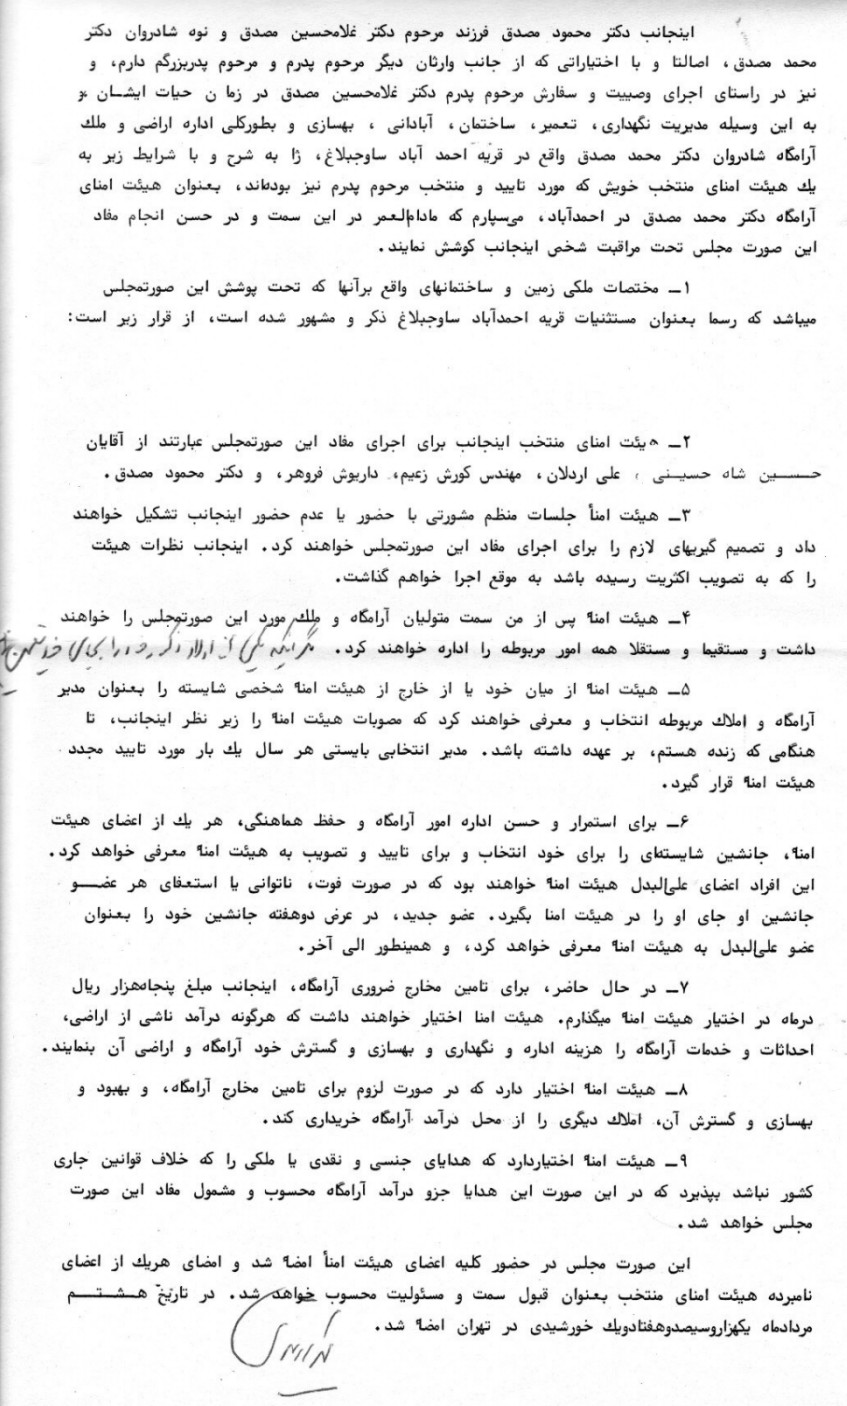 اینجانب دکتر محمود مصدق فرزند مرحوم دکتر غلامحسین مصدق و نوه شادروان دکتر
محمد مصدق، اصالتا و با اختیاراتی که از جانب وارثان دیگر مرحوم پدرم و مرحوم پدربزرگم دارم، و
نیز در راستای اجرای وصییت و سفارش مرحوم پدرم دکتر غلامحسین مصدق در زمان حیات ایشان و
به این وسیله مدیریت نگهداری، تعمیر، ساختمان، آبادانی، بهسازی و بطورکلی اداره اراضی و ملك
آرامگاه شادروان دکتر محمد مصدق واقع در قریه احمد آباد ساوجبلاغ، ژا به شرح و با شرایط زیر به
یك هیئت امنای منتخب خویش که مورد تایید و منتخب مرحوم پدرم نیز بوده‌اند، بعنوان هیئت امنای
آرامگاه دکتر محمد مصدق در احمدآباد، می‌سپارم که مادام‌العمر در این سمت و در حسن انجام مفاد
این صورت مجلس تحت مراقبت شخص اینجانب کوشش نمایند.
۱ــ مختصات ملکی زمین و ساختمانهای واقع برآنها که تحت پوشش این صورتمجلس
میباشد که رسما بعنوان مستثنیات قریه احمدآباد ساوجبلاغ ذکر و مشهور شده است، از قرار زیر است:
۲ــ هیئت امنای منتخب اینجانب برای اجرای مفاد این صورتمجلس عبارتند از آقایان
حسین شاه حسینی، علی اردلان، مهندس کورش زعیم، داریوش فروهر، و دکتر محمود مصدق.
۳ــ هیئت امنأ جلسات منظم مشورتی با حضور یا عدم حضور اینجانب تشکیل خواهند
داد و تصمیم گیریهای لازم را برای اجرای مفاد این صورتمجلس خواهند کرد. اینجانب نظرات هیئت
را که به تصویب اکثریت رسیده باشد به موقع اجرا خواهم گذاشت.
۴ــ هیئت امنأ پس از من سمت متولیان آرامگاه و ملك مورد این صورتمجلس را خواهند
داشت و مستقیما و مستقلا همه امور مربوطه را اداره خواهند کرد. مگر اینکه یکی از اولاد ذکور خود را بجای خویش
۵ــ هیئت امنأ از میان خود یا از خارج از هیئت امنأ شخصی شایسته را بعنوان مدیر
آرامگاه و املاك مربوطه انتخاب و معرفی خواهند کرد که مصوبات هیئت امنأ را زیر نظر اینجانب، تا
هنگامی که زنده هستم، بر عهده داشته باشد. مدیر انتخابی بایستی هر سال یك بار مورد تایید مجدد
هیئت امنأ قرار گیرد.
۶ــ برای استمرار و حسن اداره امور آرامگاه و حفظ هماهنگی، هر یك از اعضای هیئت
امنأ، جانشین شایسته‌ای را برای خود انتخاب و برای تایید و تصویب به هیئت امنأ معرفی خواهد کرد.
این افراد اعضای علی‌البدل هیئت امنأ خواهند بود که در صورت فوت، ناتوانی یا استعفای هر عضو
جانشین او جای او را در هیئت امنا بگیرد. عضو جدید، در عرض دوهفته جانشین خود را بعنوان
عضو علی‌البدل به هیئت امنأ معرفی خواهد کرد، و همینطور الی آخر.
۷ــ در حال حاضر، برای تامین مخارج ضروری آرامگاه، اینجانب مبلغ پنجاه‌هزار ریال
درماه در اختیار هیئت امنأ میگذارم. هیئت امنا اختیار خواهند داشت که هرگونه درآمد ناشی از اراضی،
احداثات و خدمات آرامگاه را هزینه اداره و نگهداری و بهسازی و گسترش خود آرامگاه و اراضی آن بنمایند.
۸ــ هیئت امنأ اختیار دارد که در صورت لزوم برای تامین مخارج آرامگاه، و بهبود و
بهسازی و گسترش آن، املاك دیگری را از محل درآمد آرامگاه خریداری کند.
۹ــ هیئت امنأ اختیاردارد که هدایای جنسی و نقدی یا ملکی را که خلاف قوانین جاری
کشور نباشد بپذیرد که در این صورت این هدایا جزو درآمد آرامگاه محسوب و مشمول مفاد این صورت
مجلس خواهد شد.
این صورت مجلس در حضور کلیه اعضای هیئت امنأ امضأ شد و امضای هریك از اعضای
نامبرده هیئت امنای منتخب بعنوان قبول سمت و مسئولیت محسوب خواهد شد. در تاریخ هشتم
مردادماه یکهزاروسیصدوهفتادویك خورشیدی در تهران امضأ شد.